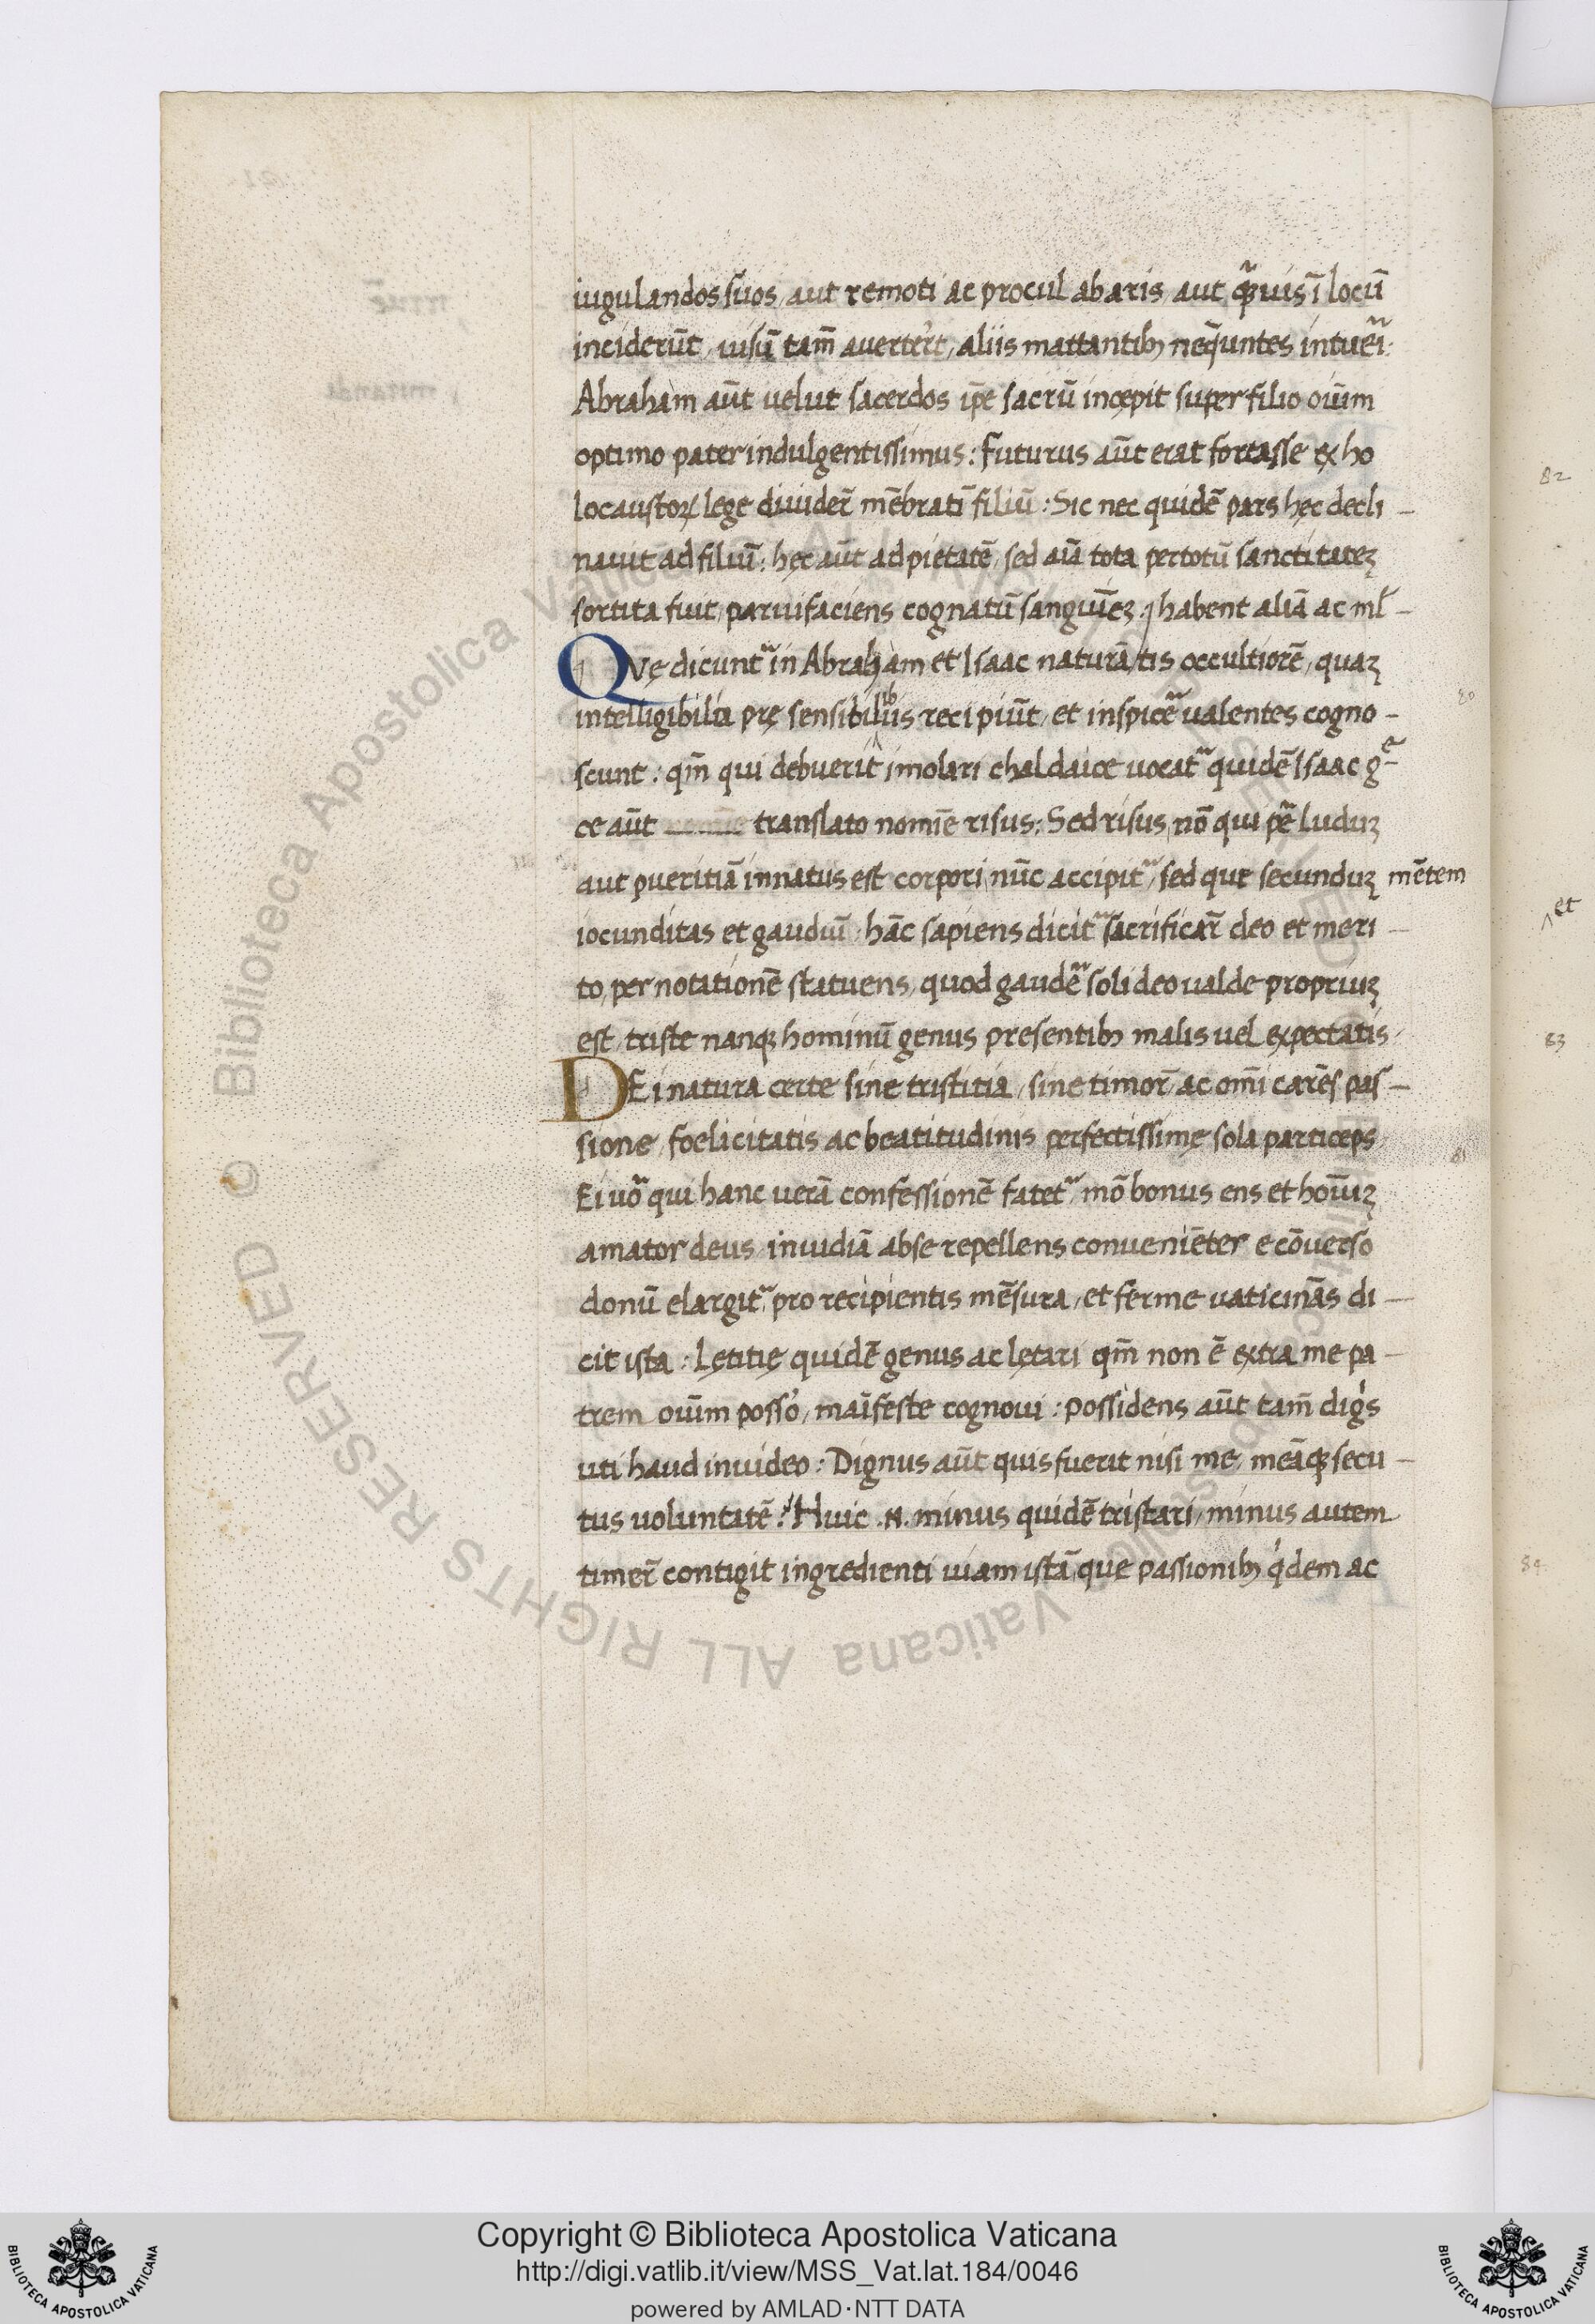 iugulandos suos, aut remoti ac procul ab aris, aut q̃uis ī locū
inciderūt, uisū tam̄ auertert̃, aliis mattantib; neq̄untes intueri:
Abraham aūt uelut sacerdos ip̄e sacrū incępit super filio oīum
optimo pater indulgentissimus: Futurus aūt erat fortasse ex ho
locaustoꝝ lege diuider̃ mēbratī filiū: Sic nec quidē pars hęc decli-
nauit ad filiū: hęc aūt ad pietatē, sed aīa tota per totū sanctitateꝫ
sortita fuit, paruifaciens cognatū sanguīeꝫ: habent aliā ac ml̃-
QVę dicuntᷣ in Abraham et Isaac naturā, tis occultiorē, quaꝫ
intelligibilia prę sensibilibus recipiūt, et inspicer̃ ualentes cogno-
scunt: qm̄ qui debuerit imolari chaldaice uocatᷣ quidē Isaac g̃-
ce aūt ____ translato nomīe risus: Sed risus, nō qui per̃ luduꝫ
aut pueritiā innatus est corpori, nūc accipitᷣ, sed quę secunduꝫ mētem
iocunditas et gaudiū: hāc sapiens dicitᷣ sacrificar̃ deo et meri-
to, per notationē statuens, quod gauder̃ soli deo ualde propriuꝫ
est, triste nanqꝫ hominū genus presentib; malis uel expectatis,
DEi natura certe sine tristitia, sine timor̃ ac om̄i carēs pas-
sione, foelicitatis ac beatitudinis perfectissimę sola particeps,
Ei uō qui hanc uerā confessionē fatetᷣ, mō bonus ens et hoīuꝫ
amator deus, inuidiā abse repellens conueniēter e cōuerso
donū elargitᷣ, pro recipientis mēsura, et ferme uaticinās di-
cit ista: Lętitię quidē genus ac lętari qm̄ non ē extra me pa-
trem oīum posso᷒, maīfeste cognoui: possidens aūt tam̄ dig̃s
uti haud inuideo: Dignus aūt quis fuerit nisi me, meāqꝫ secu-
tus uoluntatē? Huic .N. minus quidē tristari, minus autem
timer̃ contigit ingredienti uiam istā, que passionib; q̇dem ac
82
80
et
83
81
84
© Biblioteca Apostolica Vaticana ALL RIGHTS RESERVED
Copyright © Biblioteca Apostolica Vaticana
http://digi.vatlib.it/view/MSS_Vat.lat.184/0046
powered by AMLAD·NTT DATA
BIBLIOTECA APOSTOLICA VATICANA
BIBLIOTECA APOSTOLICA VATICANA